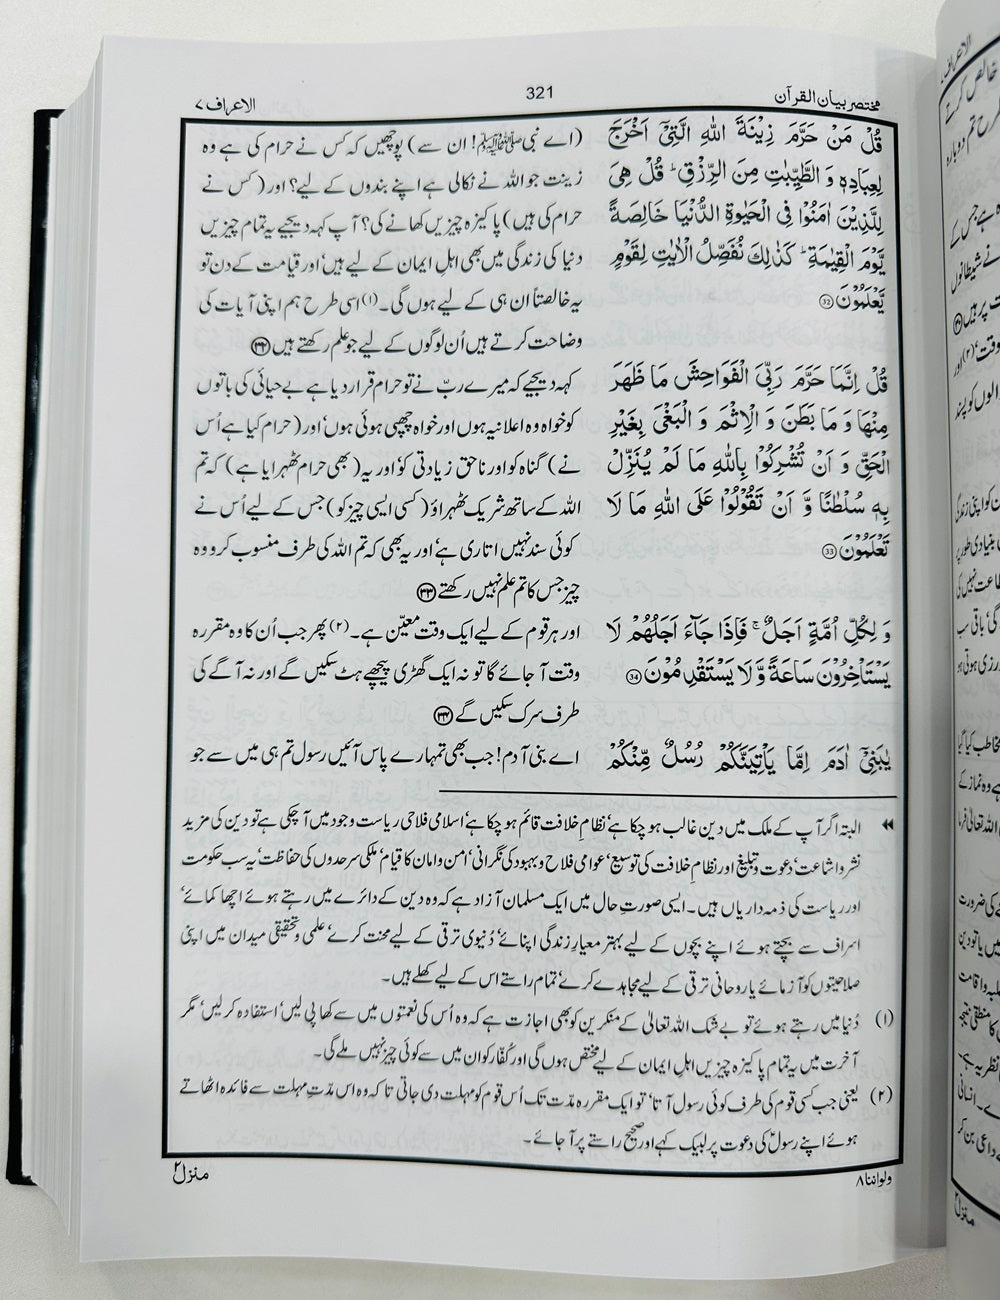 مختصر بیان القرآن
321
الاعراف ۷
قُلْ مَنْ حَرَّمَ زِيْنَةَ اللّٰهِ الَّتِيْۤ اَخْرَجَ
لِعِبَادِهٖ وَ الطَّيِّبٰتِ مِنَ الرِّزْقِ ؕ قُلْ هِيَ
لِلَّذِيْنَ اٰمَنُوْا فِي الْحَيٰوةِ الدُّنْيَا خَالِصَةً
يَّوْمَ الْقِيٰمَةِ ؕ كَذٰلِكَ نُفَصِّلُ الْاٰيٰتِ لِقَوْمٍ
يَّعْلَمُوْنَ 32
(اے نبیﷺ! ان سے) پوچھیں کہ کس نے حرام کی ہے وہ
زینت جو اللہ نے نکالی ہے اپنے بندوں کے لیے؟ اور (کس نے
حرام کی ہیں) پاکیزہ چیزیں کھانے کی؟ آپ کہہ دیجیے یہ تمام چیزیں
دنیا کی زندگی میں بھی اہلِ ایمان کے لیے ہیں‘ اور قیامت کے دن تو
یہ خالصتاً ان ہی کے لیے ہوں گی۔(۱) اسی طرح ہم اپنی آیات کی
وضاحت کرتے ہیں اُن لوگوں کے لیے جو علم رکھتے ہیں ۳۲
قُلْ اِنَّمَا حَرَّمَ رَبِّيَ الْفَوَاحِشَ مَا ظَهَرَ
مِنْهَا وَ مَا بَطَنَ وَ الْاِثْمَ وَ الْبَغْيَ بِغَيْرِ
الْحَقِّ وَ اَنْ تُشْرِكُوْا بِاللّٰهِ مَا لَمْ يُنَزِّلْ
بِهٖ سُلْطٰنًا وَّ اَنْ تَقُوْلُوْا عَلَى اللّٰهِ مَا لَا
تَعْلَمُوْنَ 33
کہہ دیجیے کہ میرے ربّ نے تو حرام قرار دیا ہے بے حیائی کی باتوں
کو خواہ وہ اعلانیہ ہوں اور خواہ چھپی ہوئی ہوں‘ اور (حرام کیا ہے اُس
نے) گناہ کو اور ناحق زیادتی کو‘ اور یہ (بھی حرام ٹھہرایا ہے) کہ تم
اللہ کے ساتھ شریک ٹھہراؤ (کسی ایسی چیز کو) جس کے لیے اُس نے
کوئی سند نہیں اتاری ہے‘ اور یہ بھی کہ تم اللہ کی طرف منسوب کرو وہ
چیز جس کا تم علم نہیں رکھتے ۳۳
وَ لِكُلِّ اُمَّةٍ اَجَلٌ ۚ فَاِذَا جَآءَ اَجَلُهُمْ لَا
يَسْتَاْخِرُوْنَ سَاعَةً وَّ لَا يَسْتَقْدِمُوْنَ 34
اور ہر قوم کے لیے ایک وقت معیّن ہے۔(۲) پھر جب اُن کا وہ مقررہ
وقت آ جائے گا تو نہ ایک گھڑی پیچھے ہٹ سکیں گے اور نہ آگے کی
طرف سرک سکیں گے ۳۴
يٰبَنِيْۤ اٰدَمَ اِمَّا يَاْتِيَنَّكُمْ رُسُلٌ مِّنْكُمْ
اے بنی آدم! جب بھی تمہارے پاس آئیں رسول تم ہی میں سے جو
البتہ اگر آپ کے ملک میں دین غالب ہو چکا ہے‘ نظامِ خلافت قائم ہو چکا ہے‘ اسلامی فلاحی ریاست وجود میں آ چکی ہے تو دین کی مزید
نشر و اشاعت‘ دعوت و تبلیغ اور نظامِ خلافت کی توسیع‘ عوامی فلاح و بہبود کی نگرانی‘ امن و امان کا قیام‘ ملکی سرحدوں کی حفاظت‘ یہ سب حکومت
اور ریاست کی ذمہ داریاں ہیں۔ ایسی صورتِ حال میں ایک مسلمان آزاد ہے کہ وہ دین کے دائرے میں رہتے ہوئے اچھا کمائے‘
اسراف سے بچتے ہوئے اپنے بچوں کے لیے بہتر معیارِ زندگی اپنائے‘ دُنیوی ترقی کے لیے محنت کرے‘ علمی و تحقیقی میدان میں اپنی
صلاحیتوں کو آزمائے یا روحانی ترقی کے لیے مجاہدے کرے‘ تمام راستے اس کے لیے کھلے ہیں۔
(۱) دُنیا میں رہتے ہوئے تو بے شک اللہ تعالیٰ کے منکرین کو بھی اجازت ہے کہ وہ اُس کی نعمتوں میں سے کھا پی لیں‘ استفادہ کر لیں‘ مگر
آخرت میں یہ تمام پاکیزہ چیزیں اہلِ ایمان کے لیے مختص ہوں گی اور کفّار کو ان میں سے کوئی چیز نہیں ملے گی۔
(۲) یعنی جب کسی قوم کی طرف کوئی رسول آتا‘ تو ایک مقررہ مدّت تک اُس قوم کو مہلت دی جاتی تاکہ وہ اس مدّتِ مہلت سے فائدہ اٹھاتے
ہوئے اپنے رسولؑ کی دعوت پر لبیک کہے اور صحیح راستے پر آ جائے۔
ولواننا ۸
منزل ۲